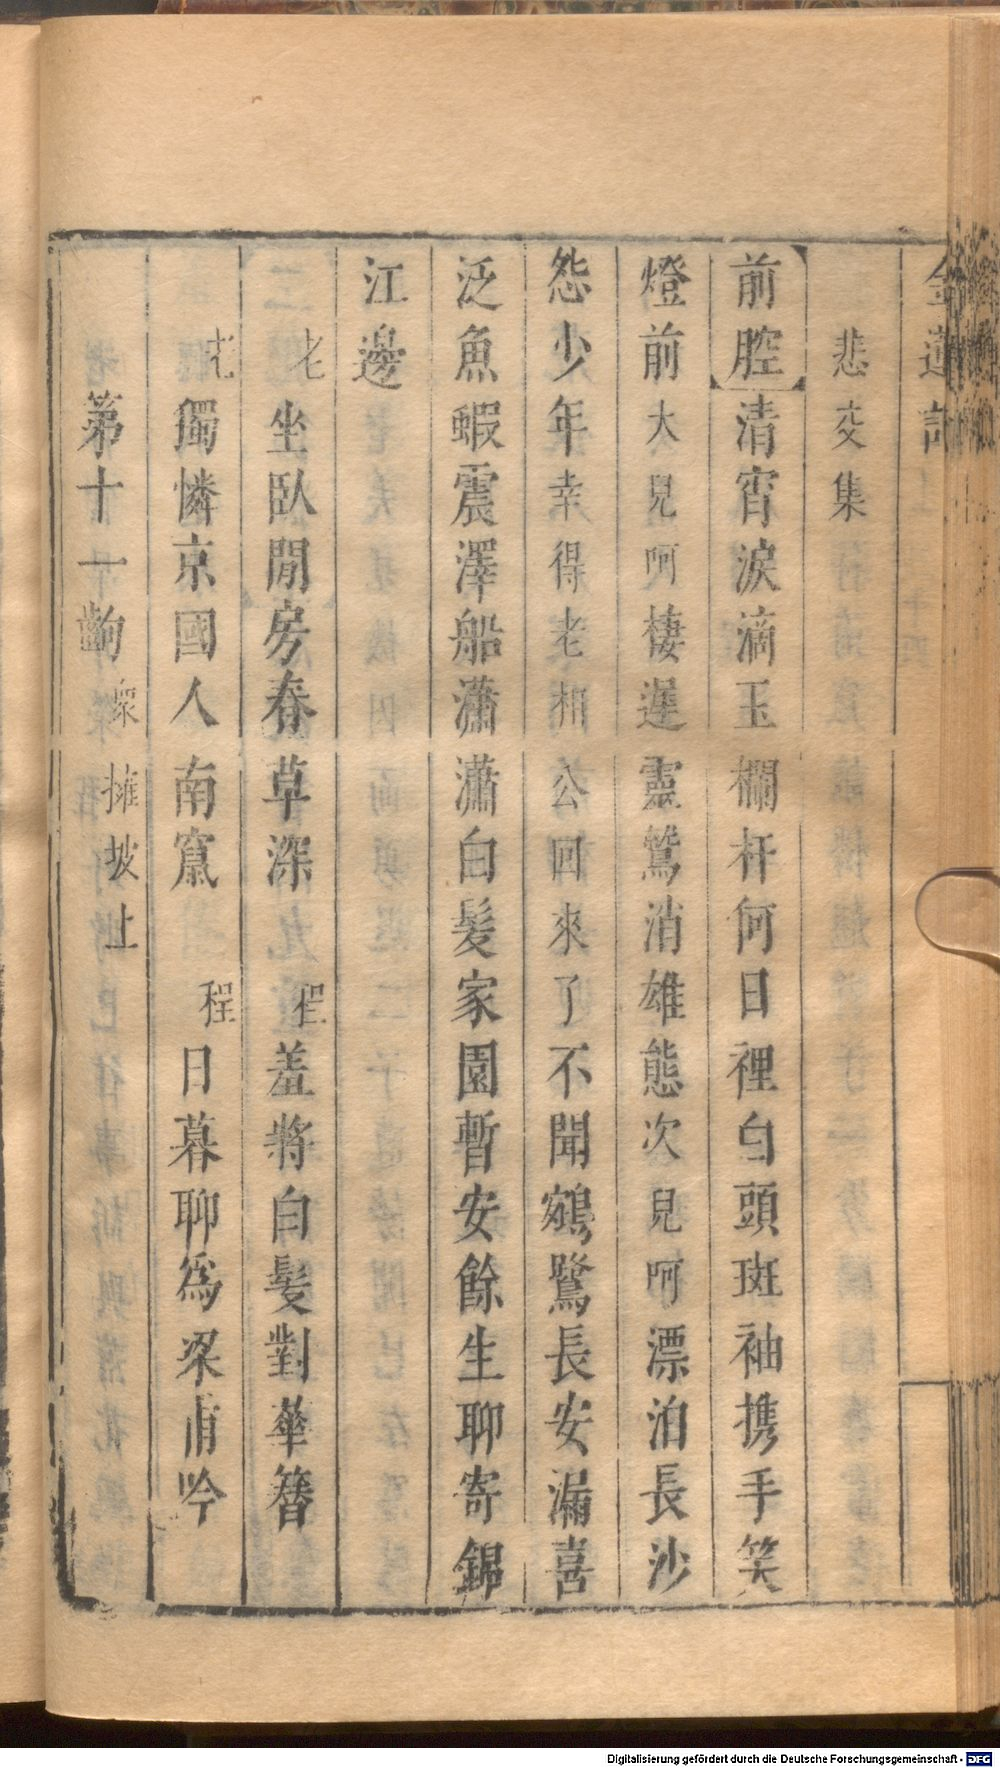 金蓮記
悲交集
前腔清宵淚滴玉欄杆何日裡白頭斑袖携手笑
燈前大兒呵棲遲靈鷲消雄態次兒呵漂泊長沙
怨少年幸得老相公回來了不聞鵷鷺長安漏喜
泛魚蝦震澤船瀟瀟白髮家園暫安餘生聊寄錦
江邊
老坐臥閒房春草深 程羞將白髮對華簪
老獨憐京國人南竄 程日暮聊爲梁甫吟
第十一齣衆擁坡上
Digitalisierung gefördert durch die Deutsche Forschungsgemeinschaft - DFG